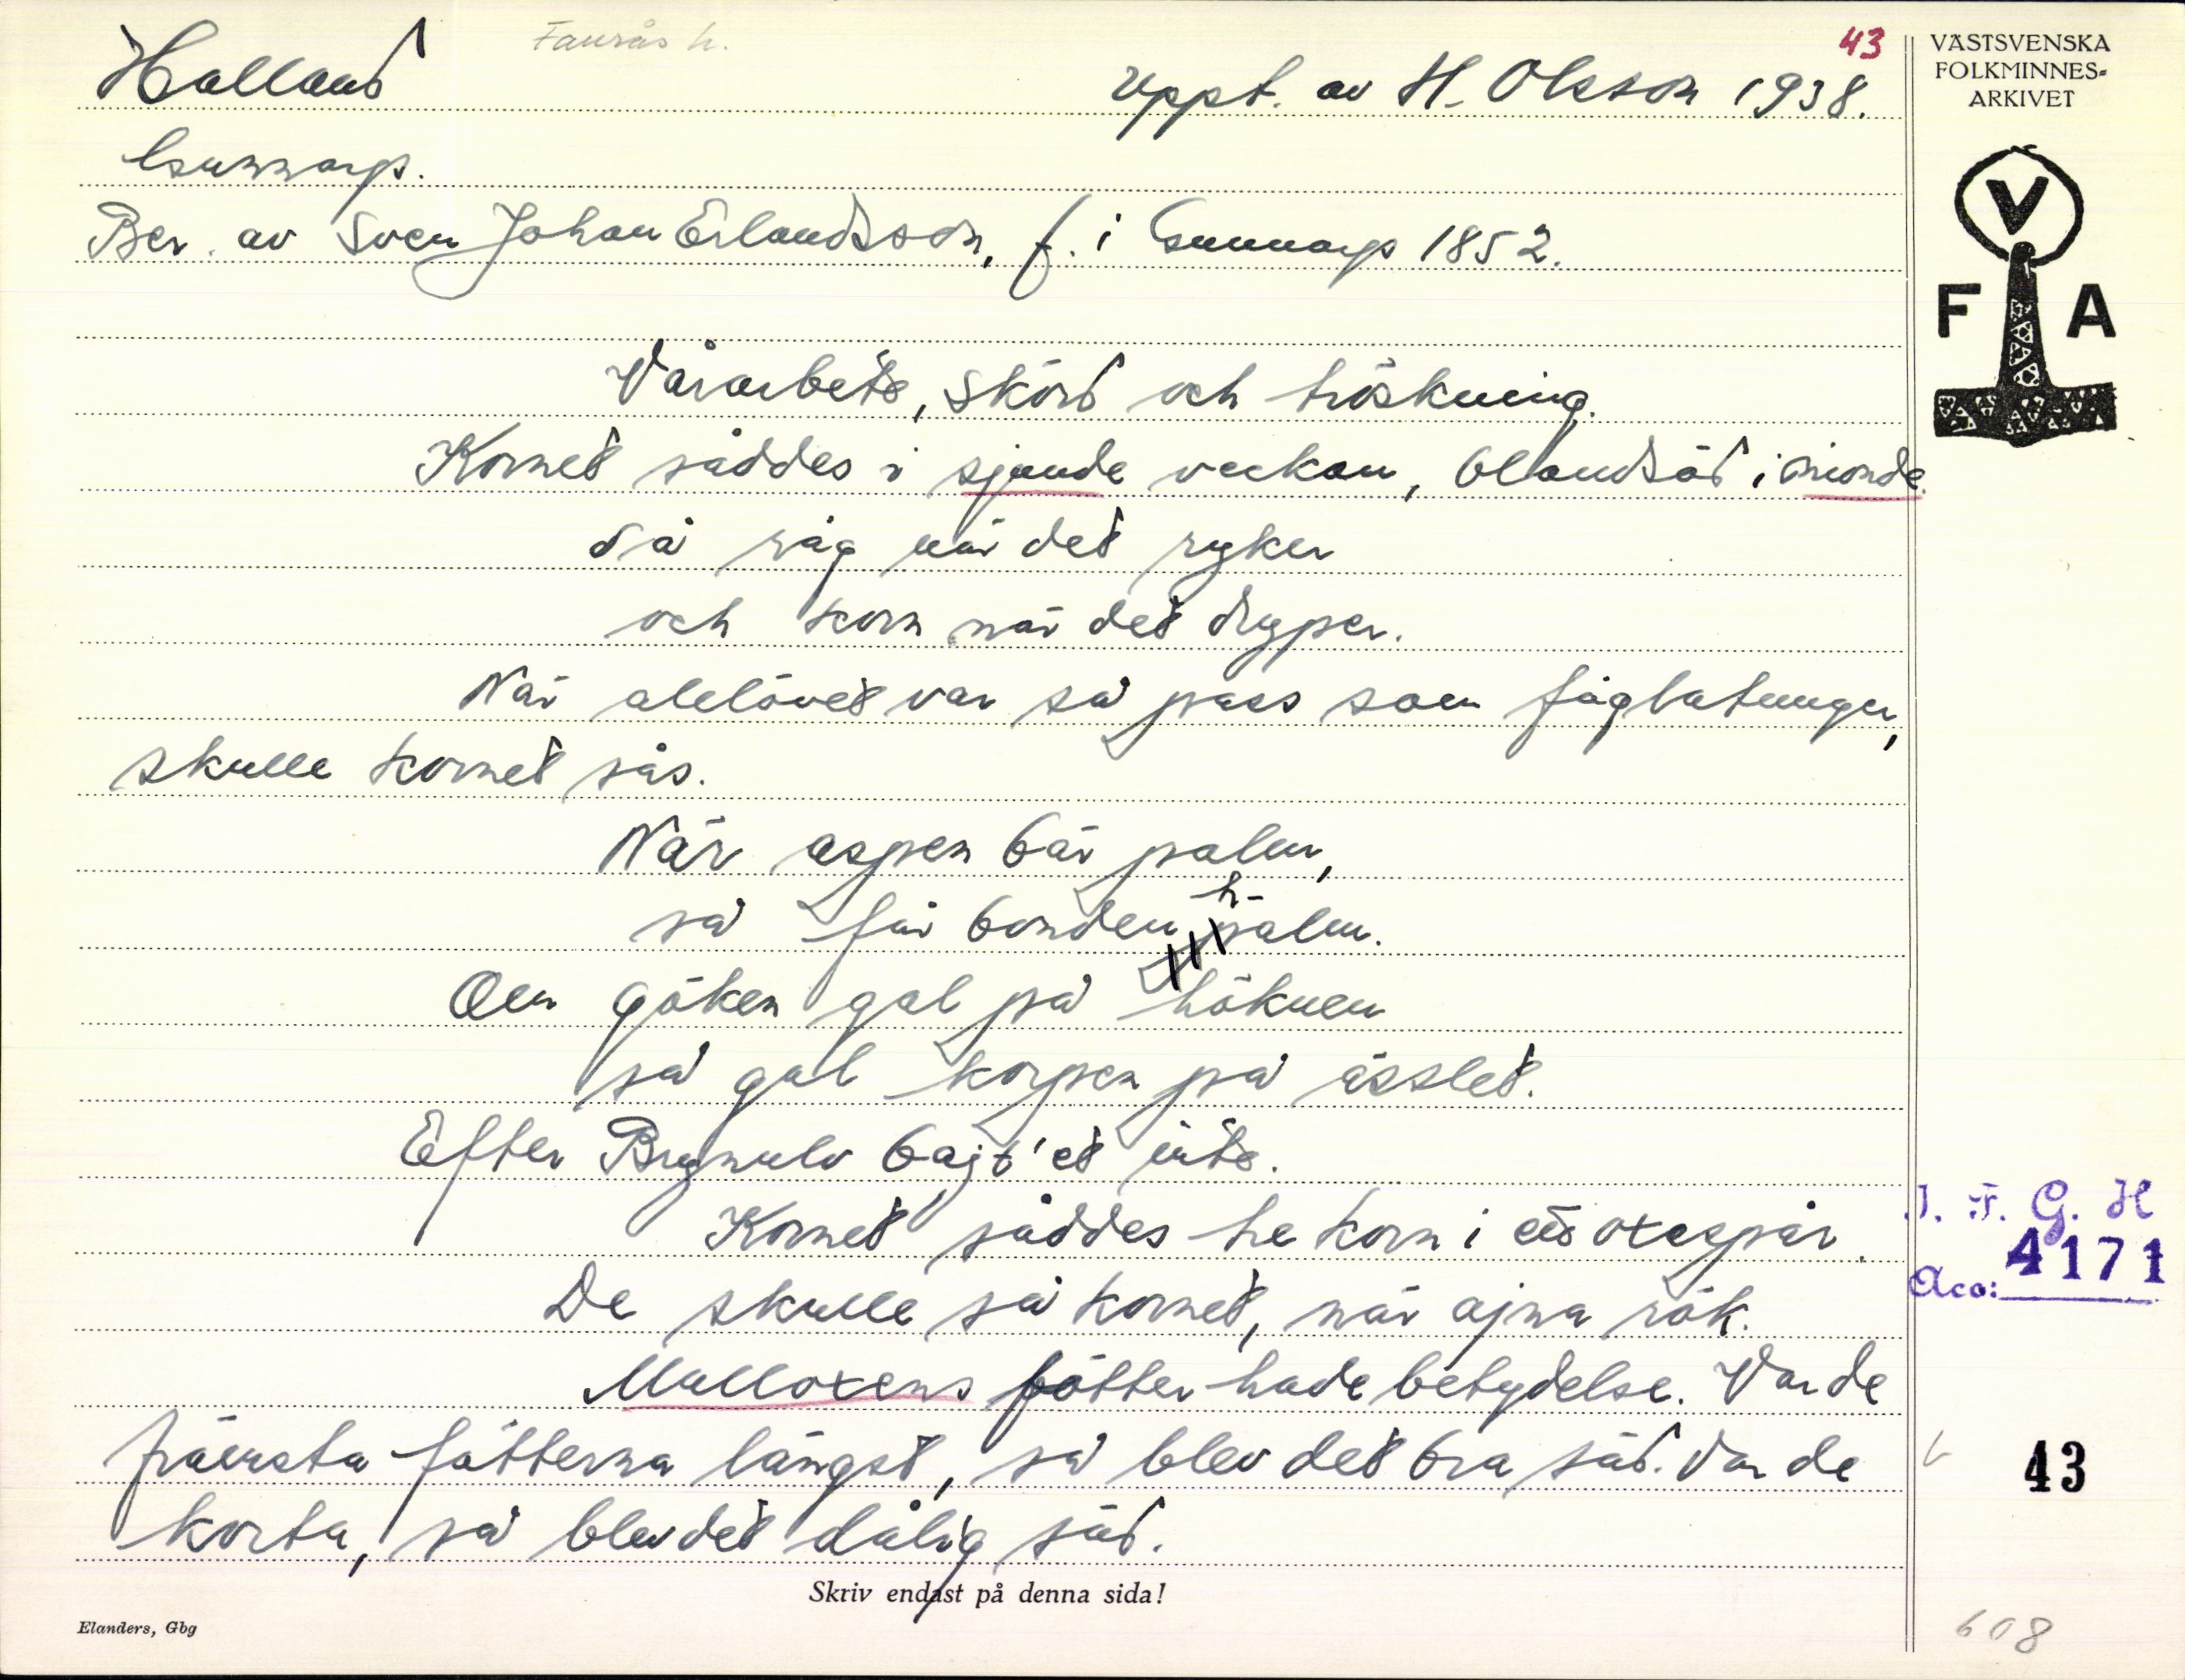 Faurås h.
43
Halland
Uppt. av H. Olsson 1938.
Gunnarp.
Ber. av Sven Johan Erlandsson, f. i Gunnarp 1852.
Vårarbete, skörd och tröskning.
Kornet såddes i sjunde veckan, blandsäd i nionde.
Så råg när det ryker
och korn när det dryper.
När alelövet var så pass som fåglatungor,
skulle kornet sås.
När aspen bär palm,
så får bonden halm.
Om göken gal på höknen
så gal korpen på ässlet.
Efter Brynulv bajt'et inte.
Kornet såddes tre korn i ett oxaspår.
De skulle så kornet, når ajna rök.
Mulloxens fötter hade betydelse. Var de
främsta fötterna längst, så blev det bra säd. Var de
korta, så blev det dålig säd.
Skriv endast på denna sida!
Elanders, Gbg
VÄSTSVENSKA
FOLKMINNES-
ARKIVET
V
F A
I. F. G. H
Acc: 4171
43
608